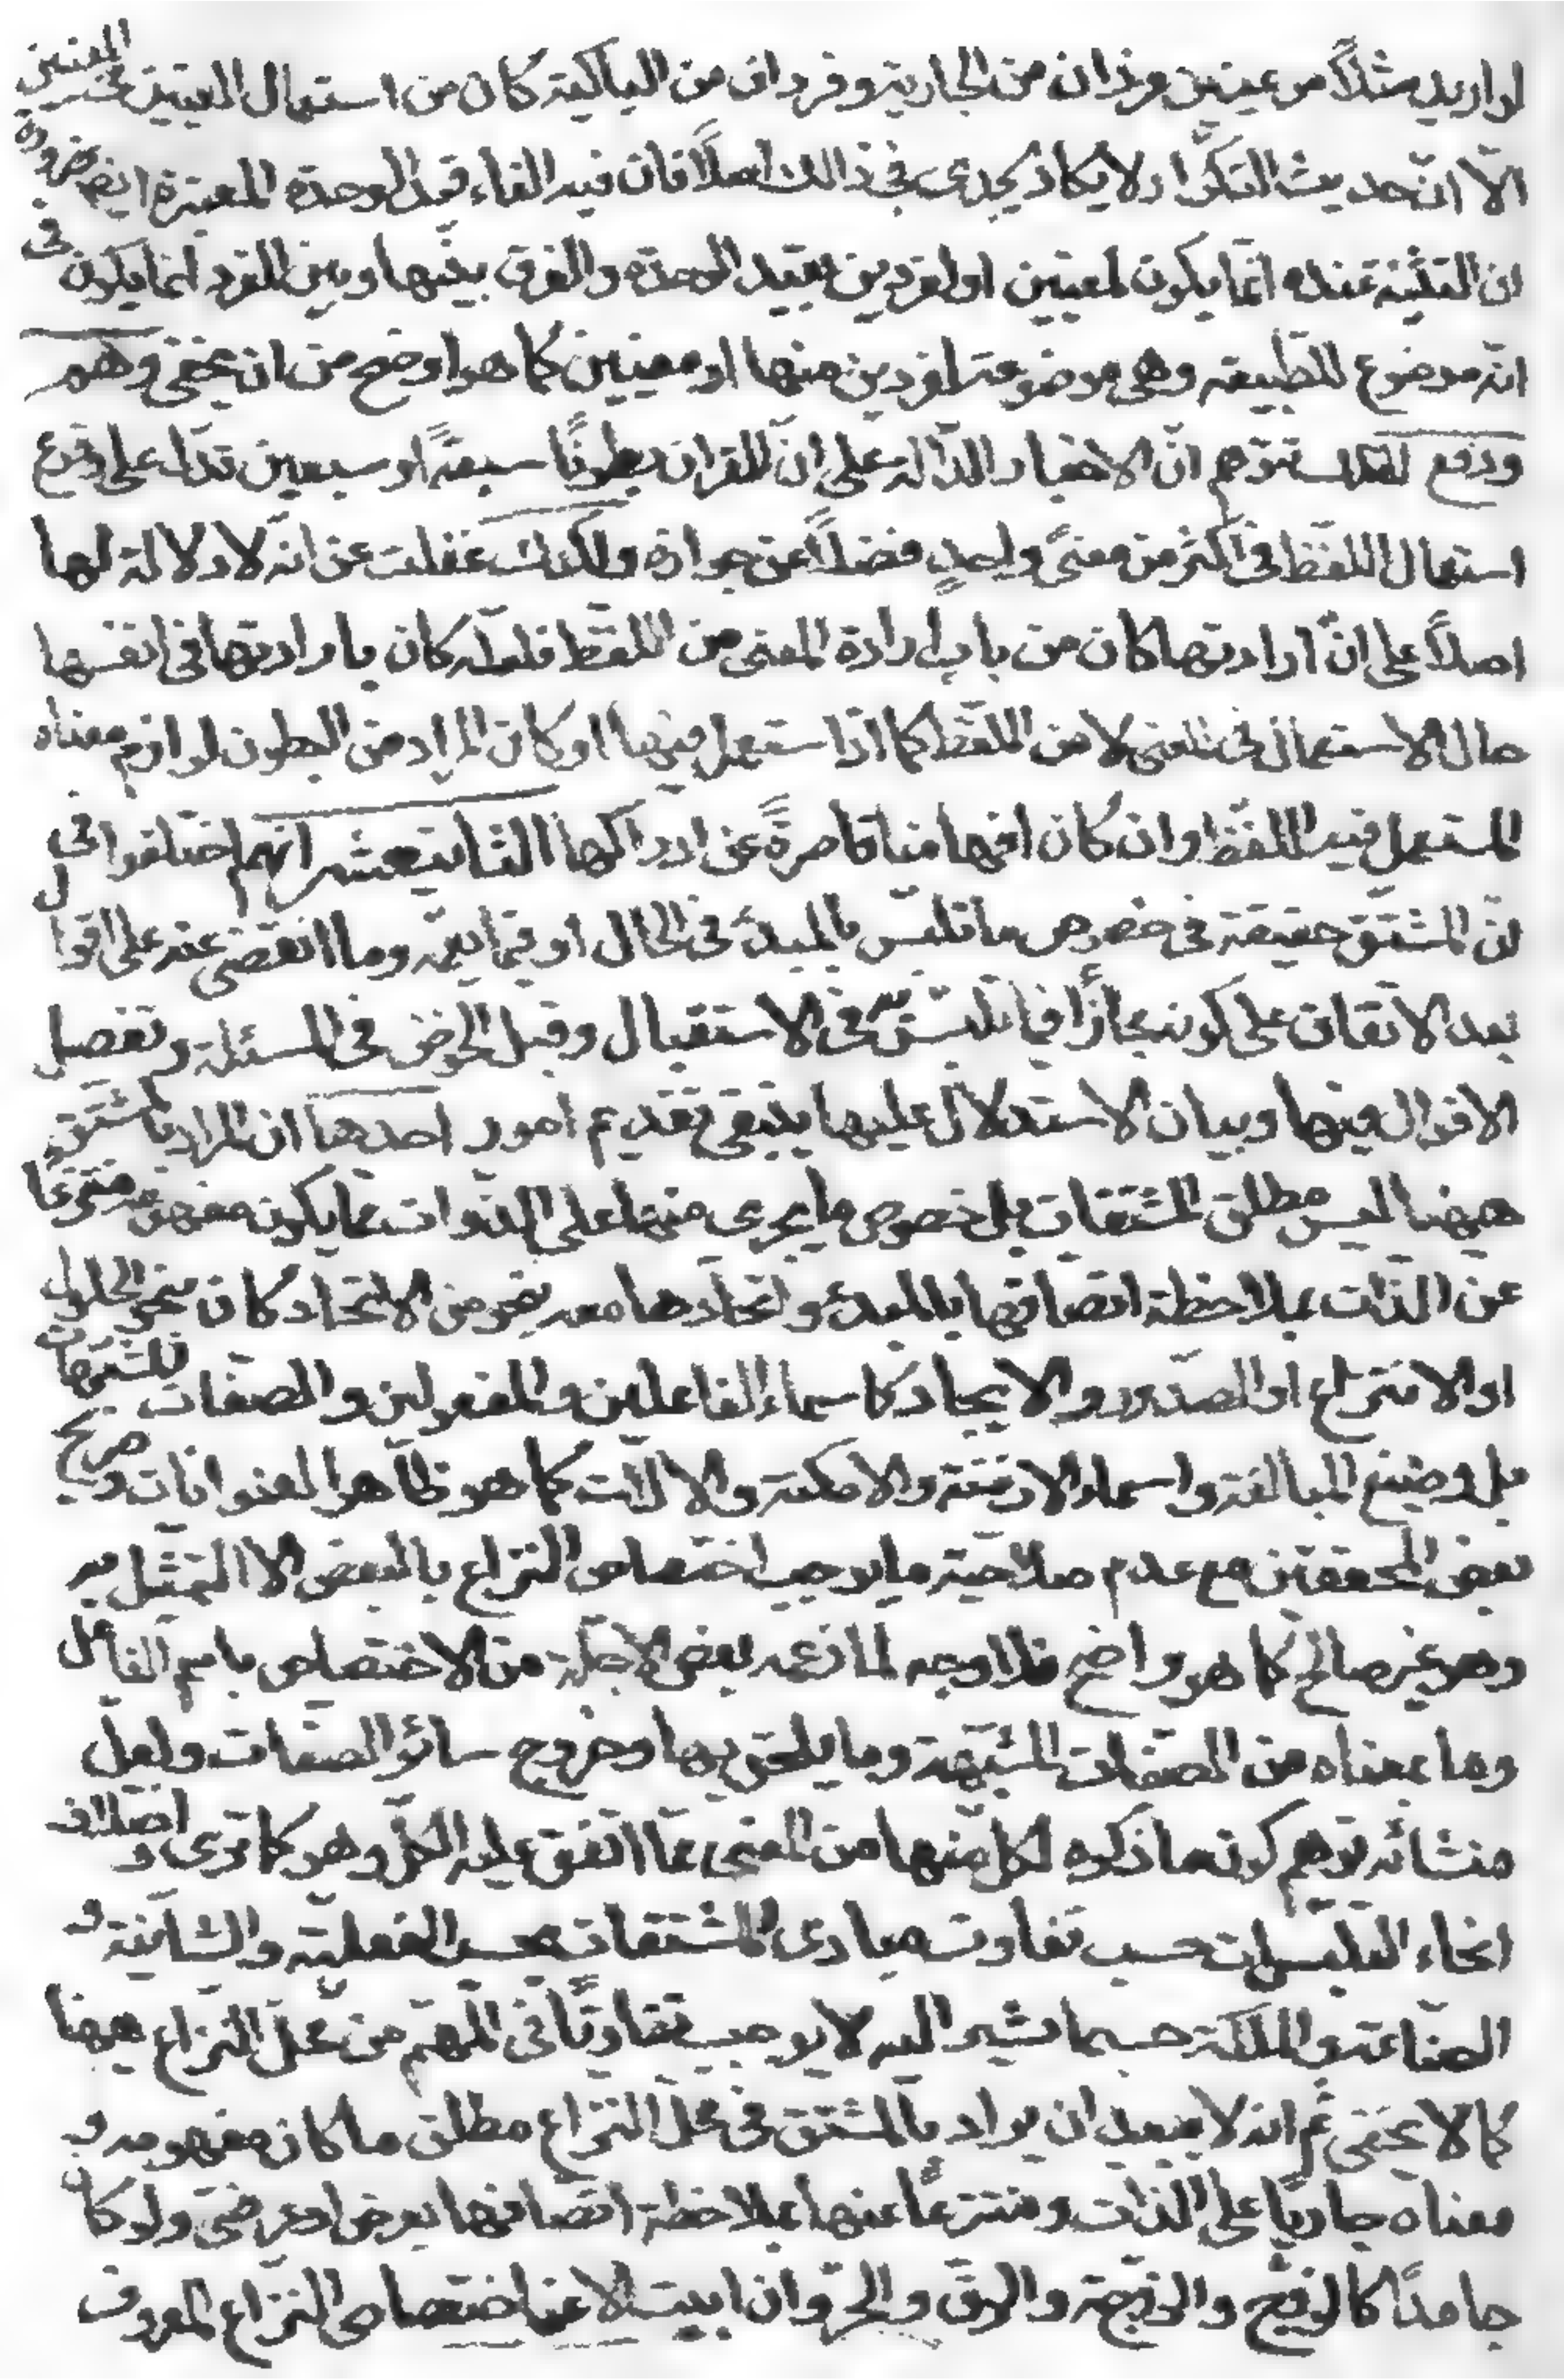 لو اريد مثلاً من عينين فردان من الجارية وفردان من الباكية كان من استعمال العينين في المعنيين
الّا انّ حديث التكرار لا يكاد يجدى في ذالك اصلاً فان فيه الغاء قيد الوحدة المعتبرة ايضا ضرورة
ان التثنية عنده انّما يكون لمعنيين او لفردين بقيد الوحدة والفرق بينهما وبين المفرد انما يكون في
انّه موضوع للطبيعة وهى موضوعة لفردين منها او معنيين كما هو اوضح من ان يخفى وهم
ودفع لعلك تتوّهم انّ الاخبار الدّالة على انّ للقران بطونًا سبعةً او سبعين تدلّ على وقوع
استعمال اللفظ في اكثر من معنىً واحدٍ فضلاً عن جوازه ولكنك غفلت عن انه لا دلالة لها
اصلاً على انّ ارادتها كان من باب ارادة المعنى من اللفظ فلعلّه كان بارادتها في انفسها
حال الاستعمال في المعنى لا من اللفظ كما اذا استعمل فيها او كان المراد من البطون لوازم معناه
المستعمل فيه اللفظ وان كان افهامنا قاصرةً عن ادراكها الثالث عشر انهم اختلفوا في
انّ المشتق حقيقة في خصوص ما تلبّس بالمبدء في الحال او فيما يعمّه وما انقضى عنه على اقوال
بعد الاتفاق على كونه مجازًا فيما يتلبّس به في الاستقبال وقبل الخوض في المسئلة وتفصيل
الاقوال فيها وبيان الاستدلال عليها ينبغى تقديم امور احدها ان المراد بالمشتق
هيهنا ليس مطلق المشتقات بل خصوص ما يجرى منها على الذّوات ممّا يكون مفهومه منتزعًا
عن الذّات بملاحظة اتصافها بالمبدء واتحادها معه بنحو من الاتحاد كان بنحو الحلول
او الانتزاع او الصّدور والايجاد كاسماء الفاعلين والمفعولين والصفات المشبهات
بل وصيغ المبالغة واسماء الازمنة والامكنة والالات كما هو ظاهر العنوانات وصريح
بعض المحققين مع عدم صلاحيّة ما يوجب اختصاص النزاع بالبعض الا التمثيل به
وهو غير صالح كما هو واضح فلا وجه لما زعمه بعض الاجلّة من الاختصاص باسم الفاعل
وما بمعناه من الصّفات المشبّهة وما يلحق بها وخروج سائر الصفات ولعل
منشائه توهم كون ما ذكره لكل منها من المعنى ممّا اتفق عليه الكلّ وهو كما ترى واختلاف
انحاء التلبّسات حسب تفاوت مبادى المشتقات بحسب الفعليّة والشأنيّة و
الصّناعة والملكة حسبما نشير اليه لا يوجب تفاوتًا في المهمّ من محلّ النزاع هيهنا
كما لا يخفى ثم انه لا يبعد ان يراد بالمشتق في محلّ النزاع مطلق ما كان مفهومه و
معناه جاريًا على الذّات ومنتزعًا عنها بملاحظة اتصافها بعرض او عرضى ولو كان
جامدًا كالزوج والزوجة والرق والحرّ وان ابيت الا عن اختصاص النزاع المعروف